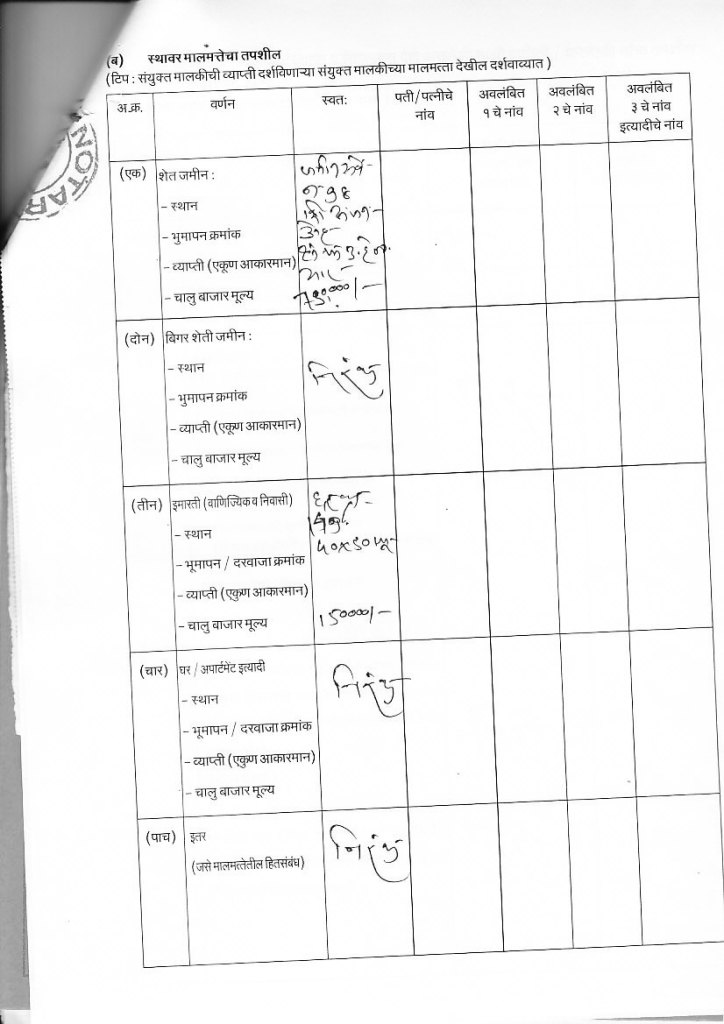 (ब) स्थावर मालमत्तेचा तपशील
(टिप : संयुक्त मालकीची व्याप्ती दर्शविणाऱ्या संयुक्त मालकीच्या मालमत्ता देखील दर्शवाव्यात )
अ.क्र. वर्णन स्वतः पती/पत्नीचे नांव अवलंबित १ चे नांव अवलंबित २ चे नांव अवलंबित ३ चे नांव इत्यादीचे नांव
NOTAR
(एक) शेत जमीन :
– स्थान
– भुमापन क्रमांक
– व्याप्ती (एकूण आकारमान)
– चालु बाजार मूल्य
(दोन) बिगर शेती जमीन :
– स्थान
निरंक
– भुमापन क्रमांक
– व्याप्ती (एकूण आकारमान)
– चालु बाजार मूल्य
(तीन) इमारती (वाणिज्यिक व निवासी)
– स्थान
– भूमापन / दरवाजा क्रमांक
– व्याप्ती (एकुण आकारमान)
– चालु बाजार मूल्य
(चार) घर / अपार्टमेंट इत्यादी
निरंक
– स्थान
– भूमापन / दरवाजा क्रमांक
– व्याप्ती (एकुण आकारमान)
– चालु बाजार मूल्य
(पाच) इतर निरंक
(जसे मालमत्तेतील हितसंबंध)